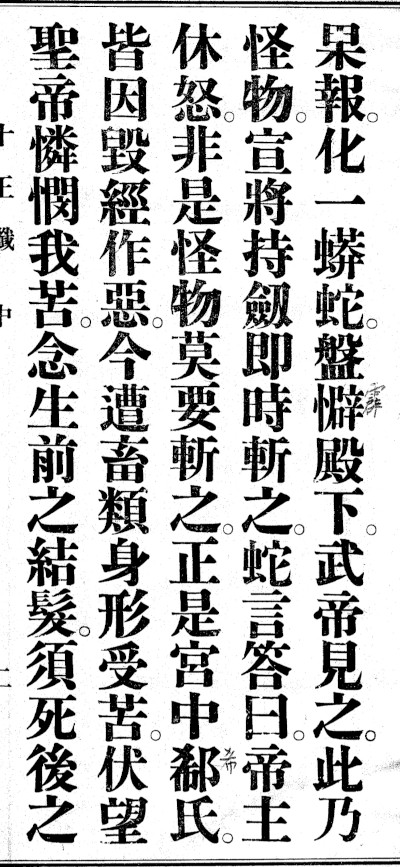 杲報。化一蟒蛇。盤懈殿下。武帝見之。此乃
怪物。宣將持劔即時斬之。蛇言答曰。帝主
休怒。非是怪物莫要斬之。正是宮中郗氏。
皆因毀經作惡。今遭畜類身形受苦。伏望
聖帝憐憫我苦。念生前之結髮。須死後之
十王懺中
二